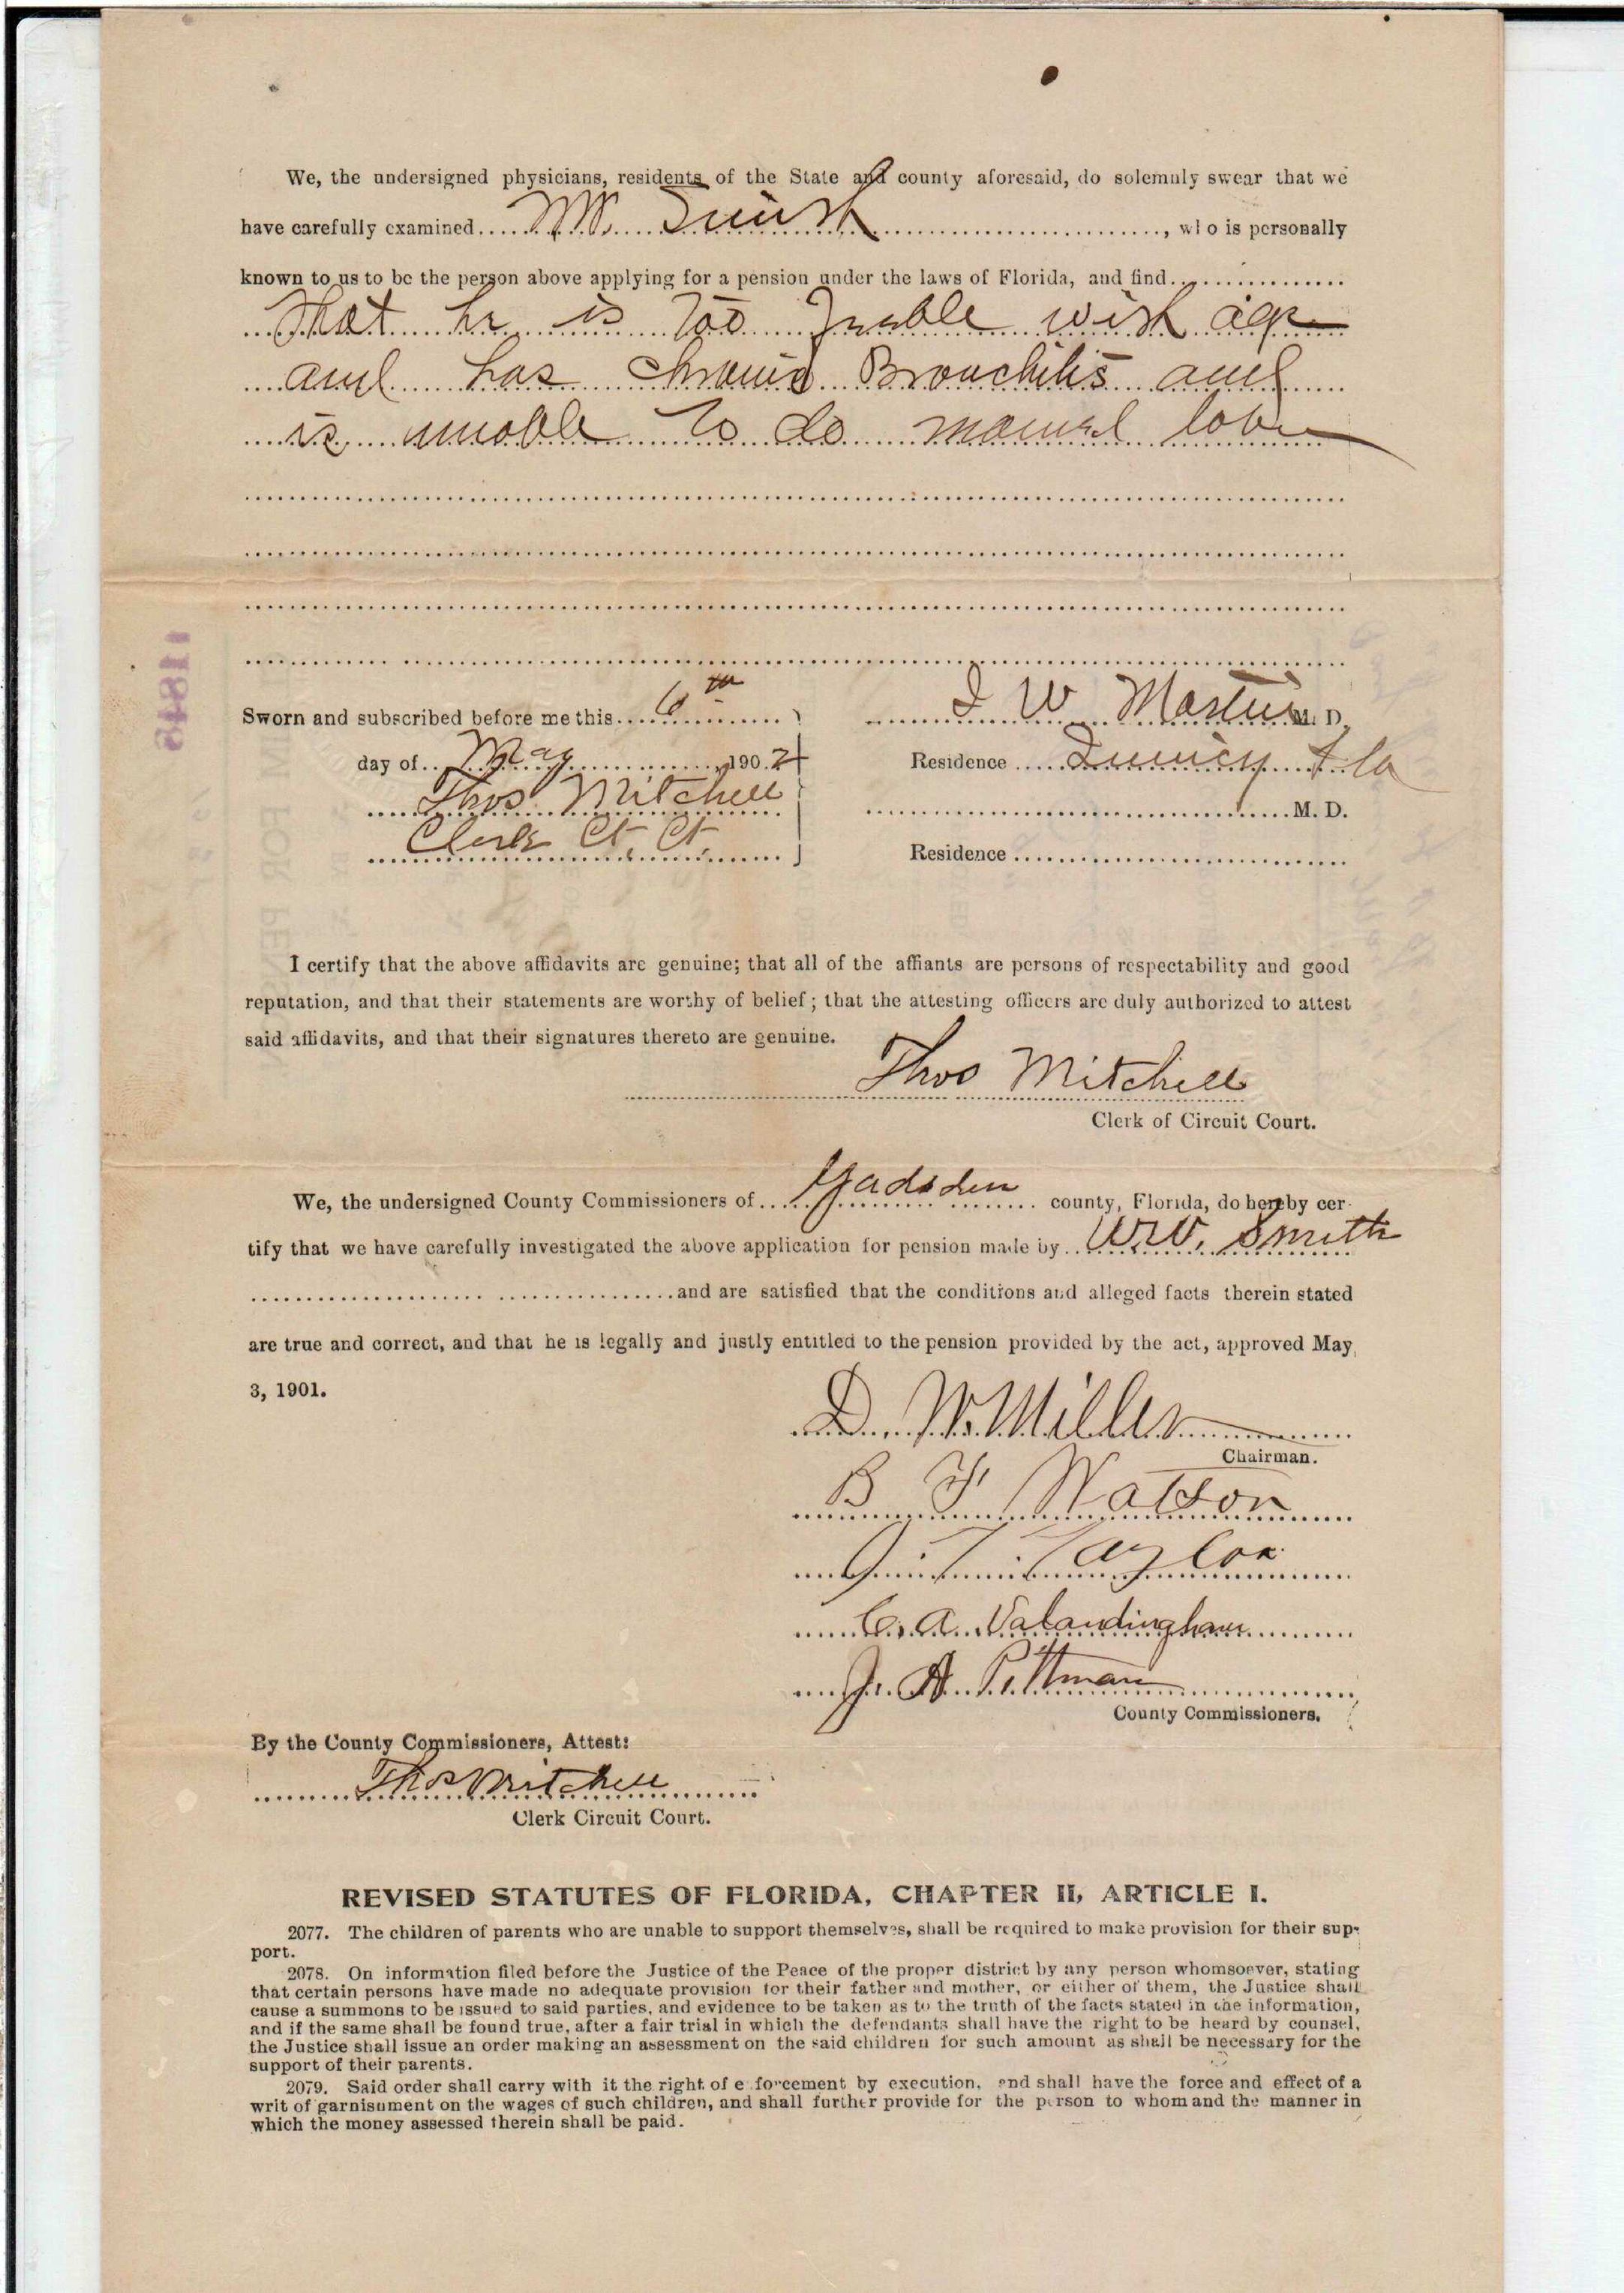 We, the undersigned physicians, residents of the State and county aforesaid, do solemnly swear that we
have carefully examined W W. Smith, who is personally
known to us to be the person above applying for a pension under the laws of Florida, and find
That he is too feeble with age
and has chronic Bronchitis and
is unable to do manual labor
11846
Sworn and subscribed before me this 6th
day of May 1902
Thos Mitchell
Clerk Ct. Ct.
W Martin M. D.
Residence Quincy Fla
M. D.
Residence
I certify that the above affidavits are genuine; that all of the affiants are persons of respectability and good
reputation, and that their statements are worthy of belief; that the attesting officers are duly authorized to attest
said affidavits, and that their signatures thereto are genuine.
Thos Mitchell
Clerk of Circuit Court.
We, the undersigned County Commissioners of Gadsden county, Florida, do hereby cer-
tify that we have carefully investigated the above application for pension made by W.W. Smith
and are satisfied that the conditions and alleged facts therein stated
are true and correct, and that he is legally and justly entitled to the pension provided by the act, approved May
3, 1901.
D. W. Miller
Chairman.
B F Watson
J. T. Taylor
C. A. Valandingham
J. A. Pittman
County Commissioners.
By the County Commissioners, Attest:
Thos Mitchell
Clerk Circuit Court.
REVISED STATUTES OF FLORIDA, CHAPTER II, ARTICLE I.
2077. The children of parents who are unable to support themselves, shall be required to make provision for their sup-
port.
2078. On information filed before the Justice of the Peace of the proper district by any person whomsoever, stating
that certain persons have made no adequate provision for their father and mother, or either of them, the Justice shall
cause a summons to be issued to said parties, and evidence to be taken as to the truth of the facts stated in the information,
and if the same shall be found true, after a fair trial in which the defendants shall have the right to be heard by counsel,
the Justice shall issue an order making an assessment on the said children for such amount as shall be necessary for the
support of their parents.
2079. Said order shall carry with it the right of e forcement by execution, and shall have the force and effect of a
writ of garnisument on the wages of such children, and shall further provide for the person to whom and the manner in
which the money assessed therein shall be paid.